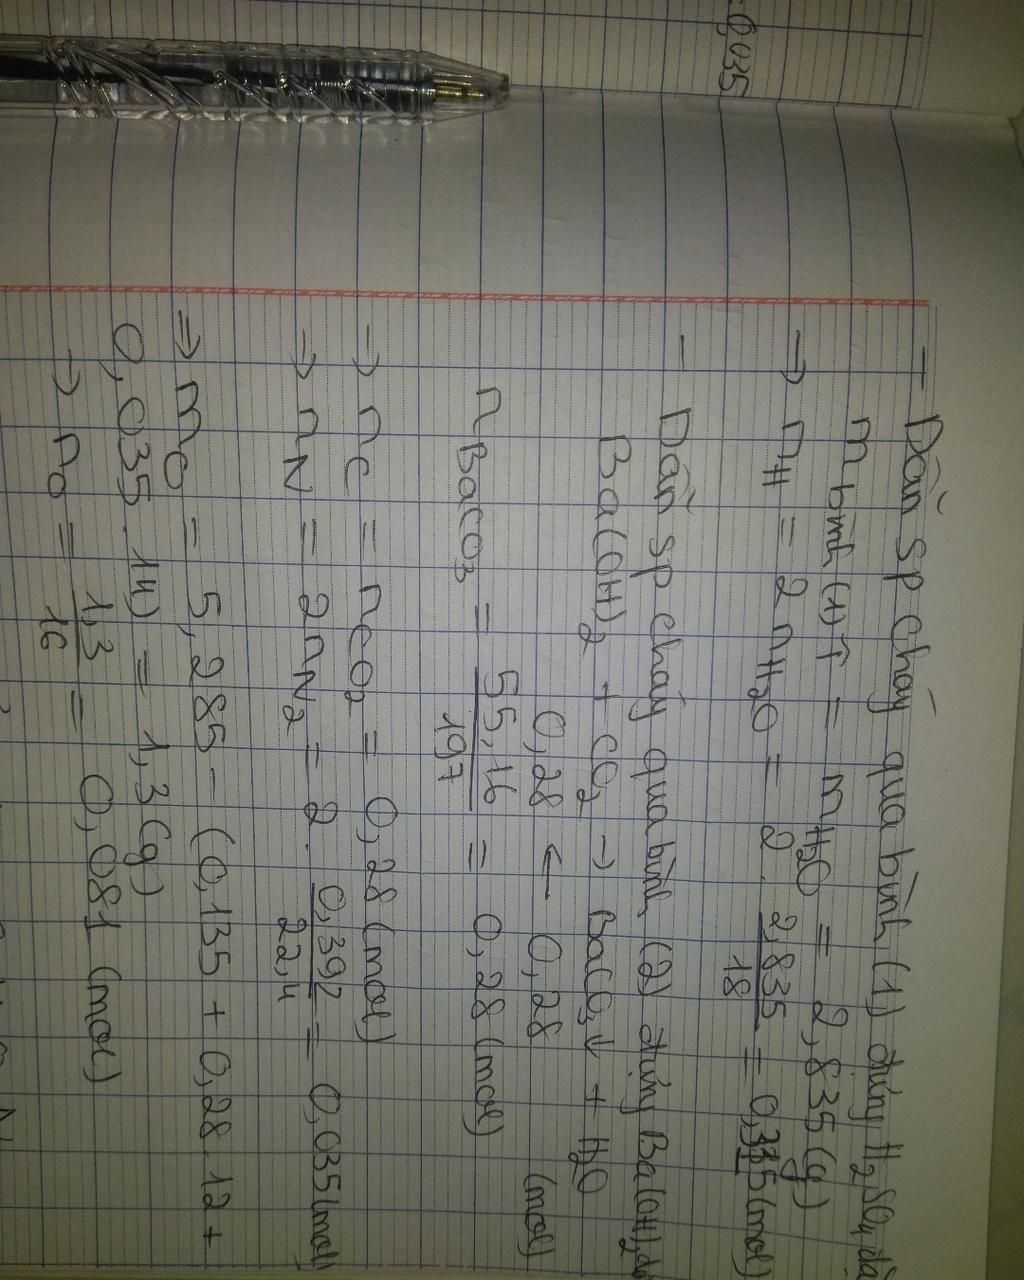 0,035
- Dẫn sp cháy qua bình (1) đựng H₂SO₄
m bình (1)↑ = mH₂O = 2,835(g)
→ nH = 2nH₂O = 2. 2,835/18 = 0,315(mol)
- Dẫn sp cháy qua bình (2) đựng Ba(OH)₂ dư
Ba(OH)₂ + CO₂ → BaCO₃↓ + H₂O
0,28 ← 0,28 (mol)
nBaCO₃ = 55,16/197 = 0,28(mol)
→ nC = nCO₂ = 0,28(mol)
→ nN = 2nN₂ = 2. 0,392/22,4 = 0,035(mol)
⇒ mO = 5,285 - (0,135 + 0,28.12 +
0,035.14) = 1,3(g)
→ nO = 1,3/16 = 0,081 (mol)